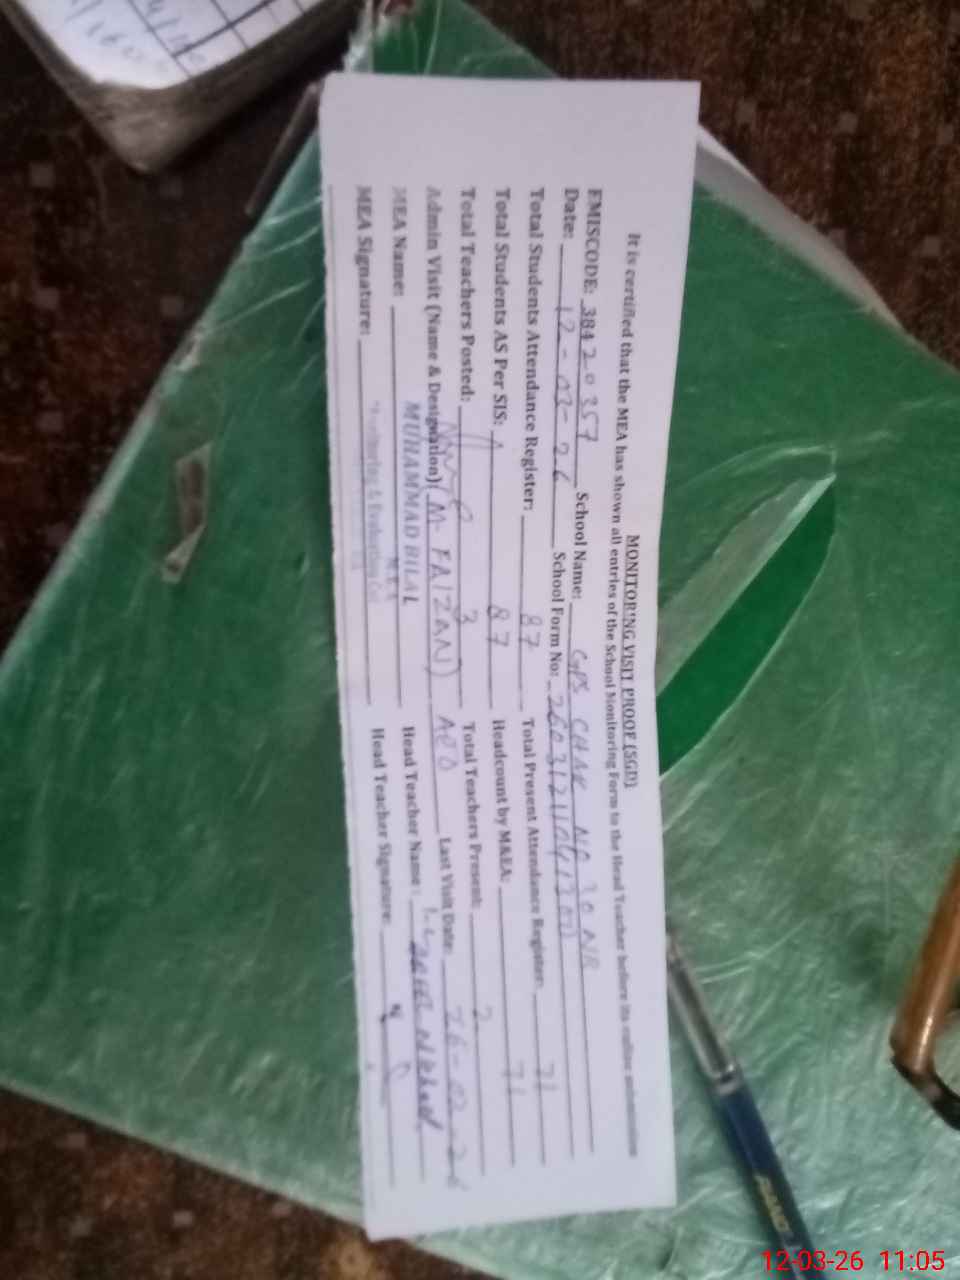 MONITORING VISIT PROOF (SGD)
It is certified that the MEA has shown all entries of the School Monitoring Form to the Head Teacher before its online submission
EMISCODE: 38420357 School Name: GPS CHAK NO 30 NB
Date: 12-03-26 School Form No:
Total Students Attendance Register: 87 Total Present Attendance Register: 71
Total Students AS Per SIS: 87 Headcount by M&EA: 71
Total Teachers Posted: 3 Total Teachers Present: 2
Admin Visit (Name & Designation) (M FAIZAN) AEO Last Visit Date: 26-02-26
MEA Name: MUHAMMAD BILAL Head Teacher Name:
MEA
Monitoring & Evaluation
MEA Signature: Head Teacher Signature:
12-03-26 11:05